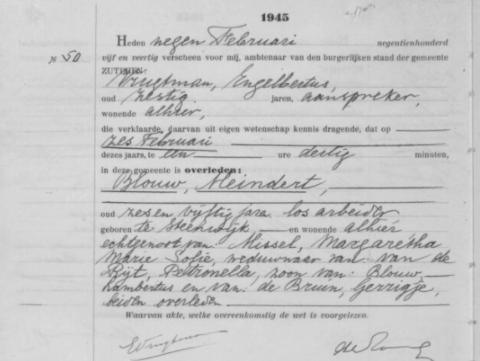 1945
No 50
Heden negen Februari negentienhonderd
vijf en veertig verscheen voor mij, ambtenaar van den burgerlijken stand der gemeente
ZUTPHEN:
Vrugtman, Engelbertus,
oud zestig jaren, aanspreker,
wonende alhier,
die verklaarde, daarvan uit eigen wetenschap kennis dragende, dat op
zes Februari
dezes jaars, te een ure dertig minuten,
in deze gemeente is overleden:
Blouw, Meindert,
oud zes en vijftig jaren los arbeider
geboren te Steenwijk en wonende alhier
echtgenoot van Missel, Margaretha
Marie Sofie, weduwnaar van van de
Rijt, Petronella, zoon van Blouw
Lambertus en van de Bruin, Gerrigje,
beiden overleden
Waarvan akte, welke overeenkomstig de wet is voorgelezen.
EVrugtman